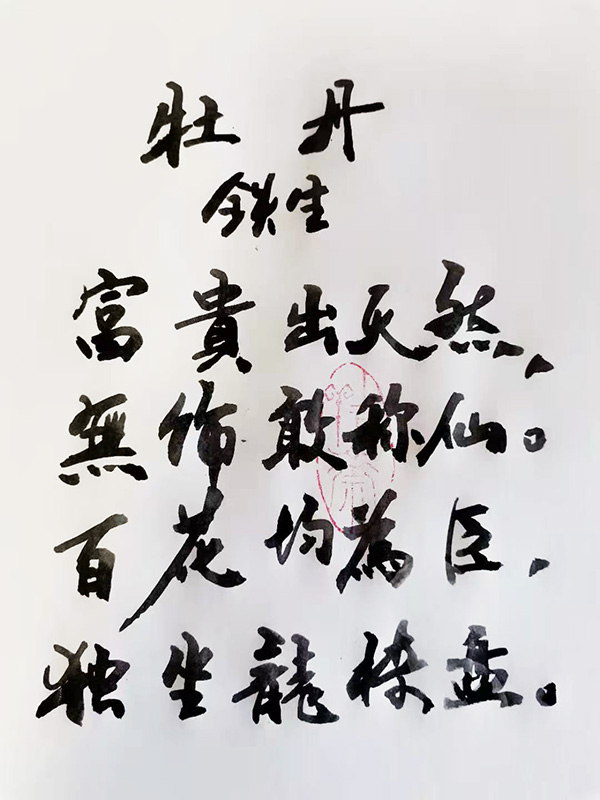 牡丹
铁生
富貴出天然，
無飾敢称仙。
百花均為臣，
独坐龍椅盘。